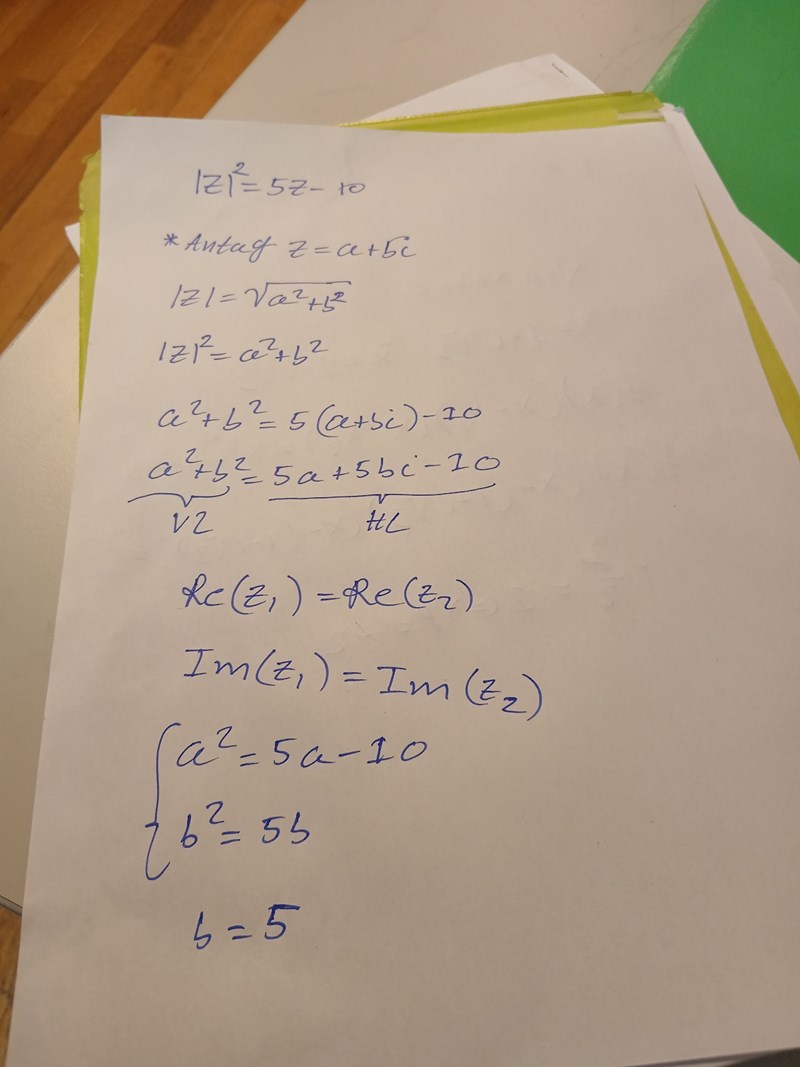 |z|² = 5z - 10
* Antag z = a + bi
|z| = √(a² + b²)
|z|² = a² + b²
a² + b² = 5(a + bi) - 10
a² + b² = 5a + 5bi - 10
VL HL
Re(z₁) = Re(z₂)
Im(z₁) = Im(z₂)
a² = 5a - 10
b² = 5b
b = 5